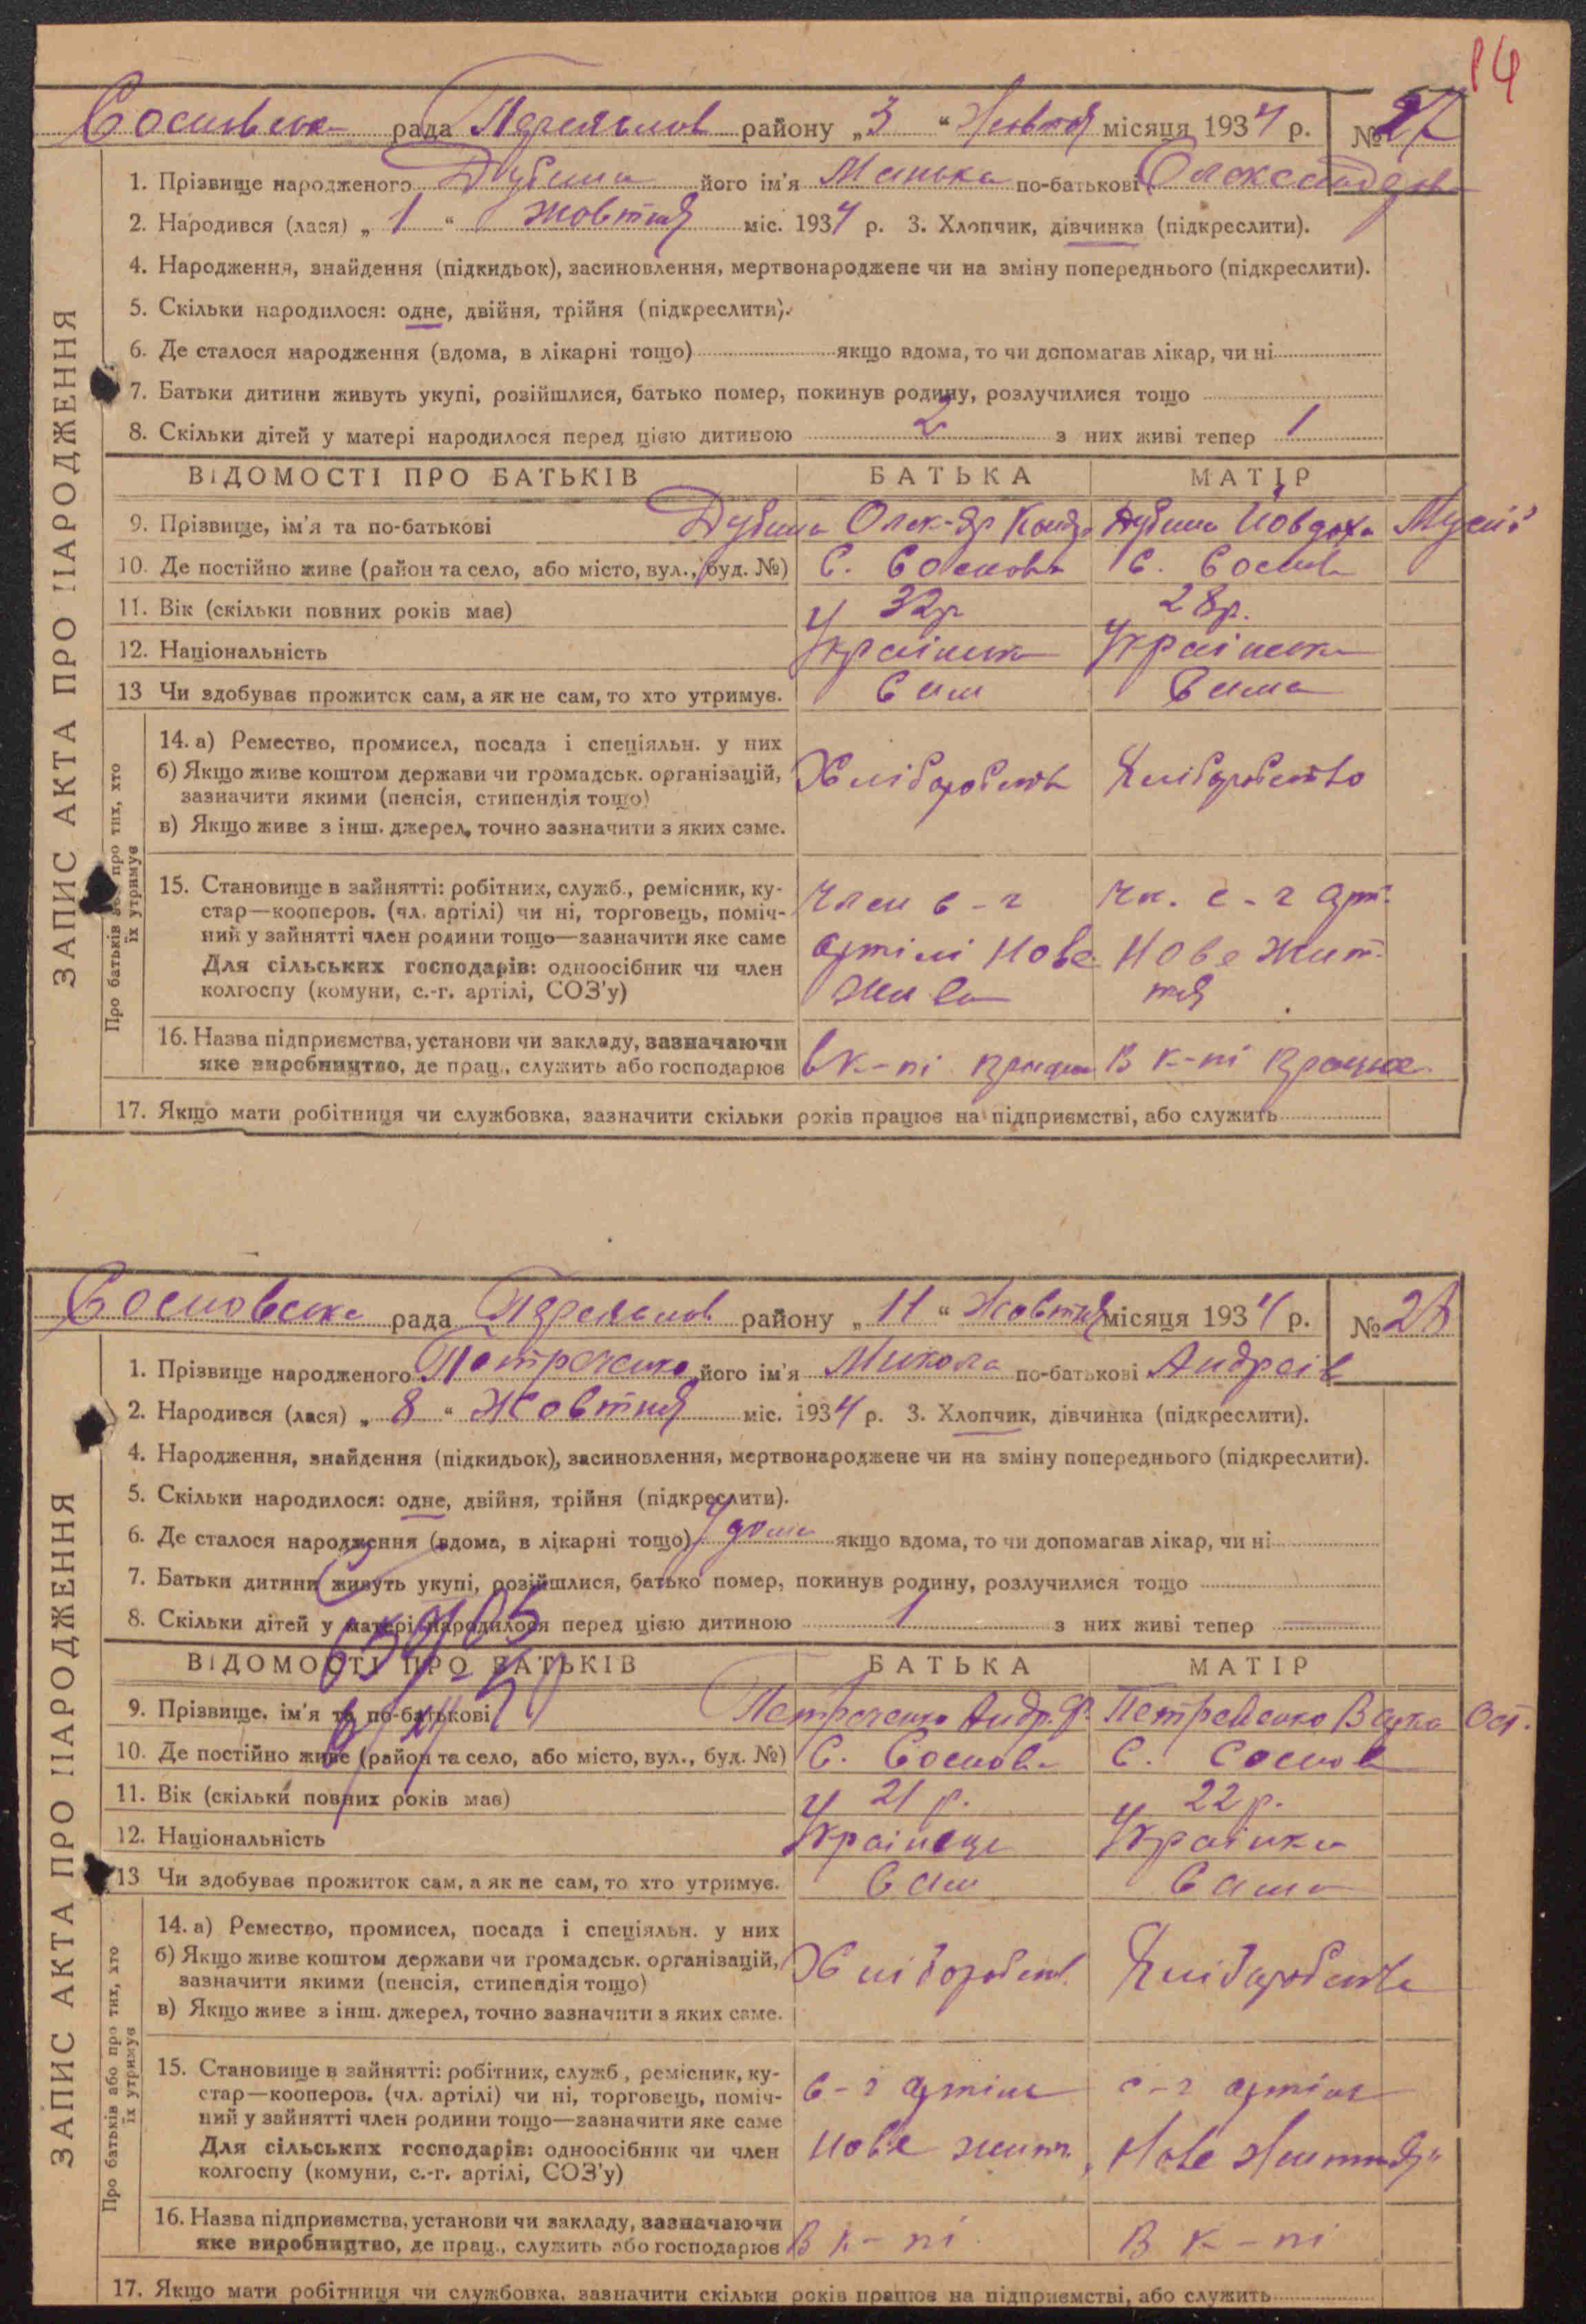 14
Сосновська рада Переяслов району „3 “ Жовтня місяця 1934 р. № 27
1. Прізвище народженого Дубина його ім'я Манька по-батькові Олександров
2. Народився (лася) „ 1 “ жовтня міс. 1934 р. 3. Хлопчик, дівчинка (підкреслити).
4. Народження, знайдення (підкидьок), засиновлення, мертвонароджене чи на зміну попереднього (підкреслити).
5. Скільки народилося: одне, двійня, трійня (підкреслити).
6. Де сталося народження (вдома, в лікарні тощо) якщо вдома, то чи допомагав лікар, чи ні
7. Батьки дитини живуть укупі, розійшлися, батько помер, покинув родину, розлучилися тощо
8. Скільки дітей у матері народилося перед цією дитиною 2 з них живі тепер 1
ВІДОМОСТІ ПРО БАТЬКІВ БАТЬКА МАТІР
9. Прізвище, ім'я та по-батькові Дубина Олек-др Дубина Йовдоха
10. Де постійно живе (район та село, або місто, вул., буд. №) С. Соснова С. Соснов
11. Вік (скільки повних років має) 32р 28р.
12. Національність Українська Українська
13 Чи здобуває прожиток сам, а як не сам, то хто утримує. Сам Сама
14. а) Ремество, промисел, посада і спеціяльн. у них
б) Якщо живе коштом держави чи громадськ. організацій, Хліборобств Хліборобство
зазначити якими (пенсія, стипендія тощо)
в) Якщо живе з інш. джерел, точно зазначити з яких саме.
15. Становище в зайнятті: робітник, служб., ремісник, ку- Член с-г чл. с-г арт.
стар—кооперов. (чл. артілі) чи ні, торговець, поміч-
ний у зайнятті член родини тощо—зазначити яке саме артілі Нове Нове Жит
Для сільських господарів: одноосібник чи член тя
колгоспу (комуни, с.-г. артілі, СОЗ'у)
16. Назва підприємства, установи чи закладу, зазначаючи
яке виробництво, де прац., служить або господарює В к-пі працює В к-пі працює
17. Якщо мати робітниця чи службовка, зазначити скільки років працює на підприємстві, або служить
ЗАПИС АКТА ПРО НАРОДЖЕННЯ
Про батьків або про тих, хто
їх утримує
Сосновська рада Переяслов району „ 11 “ Жовтня місяця 1934 р. № 28
1. Прізвище народженого Петренченко його ім'я Микола по-батькові Андреів
2. Народився (лася) „ 8 “ Жовтня міс. 1934 р. 3. Хлопчик, дівчинка (підкреслити).
4. Народження, знайдення (підкидьок), засиновлення, мертвонароджене чи на зміну попереднього (підкреслити).
5. Скільки народилося: одне, двійня, трійня (підкреслити).
6. Де сталося народження (вдома, в лікарні тощо) дома якщо вдома, то чи допомагав лікар, чи ні
7. Батьки дитини живуть укупі, розійшлися, батько помер, покинув родину, розлучилися тощо
8. Скільки дітей у матері народилося перед цією дитиною 1 з них живі тепер
ВІДОМОСТІ ПРО БАТЬКІВ БАТЬКА МАТІР
9. Прізвище, ім'я та по-батькові Андр. Ф. Ост.
10. Де постійно живе (район та село, або місто, вул., буд. №) С. Соснова С. Соснов
11. Вік (скільки повних років має) 21 р. 22 р.
12. Національність Українець Українка
13 Чи здобуває прожиток сам, а як не сам, то хто утримує. Сам Сама
14. а) Ремество, промисел, посада і спеціяльн. у них
б) Якщо живе коштом держави чи громадськ. організацій, Хліборобств. Хліборобство
зазначити якими (пенсія, стипендія тощо)
в) Якщо живе з інш. джерел, точно зазначити з яких саме.
15. Становище в зайнятті: робітник, служб., ремісник, ку-
стар—кооперов. (чл. артілі) чи ні, торговець, поміч- с-г артіль с-г артіль
ний у зайнятті член родини тощо—зазначити яке саме
Для сільських господарів: одноосібник чи член Нове житт. „Нове Життя“
колгоспу (комуни, с.-г. артілі, СОЗ'у)
16. Назва підприємства, установи чи закладу, зазначаючи
яке виробництво, де прац., служить або господарює В к-пі В к-пі
17. Якщо мати робітниця чи службовка, зазначити скільки років працює на підприємстві, або служить
ЗАПИС АКТА ПРО НАРОДЖЕННЯ
Про батьків або про тих, хто
їх утримує